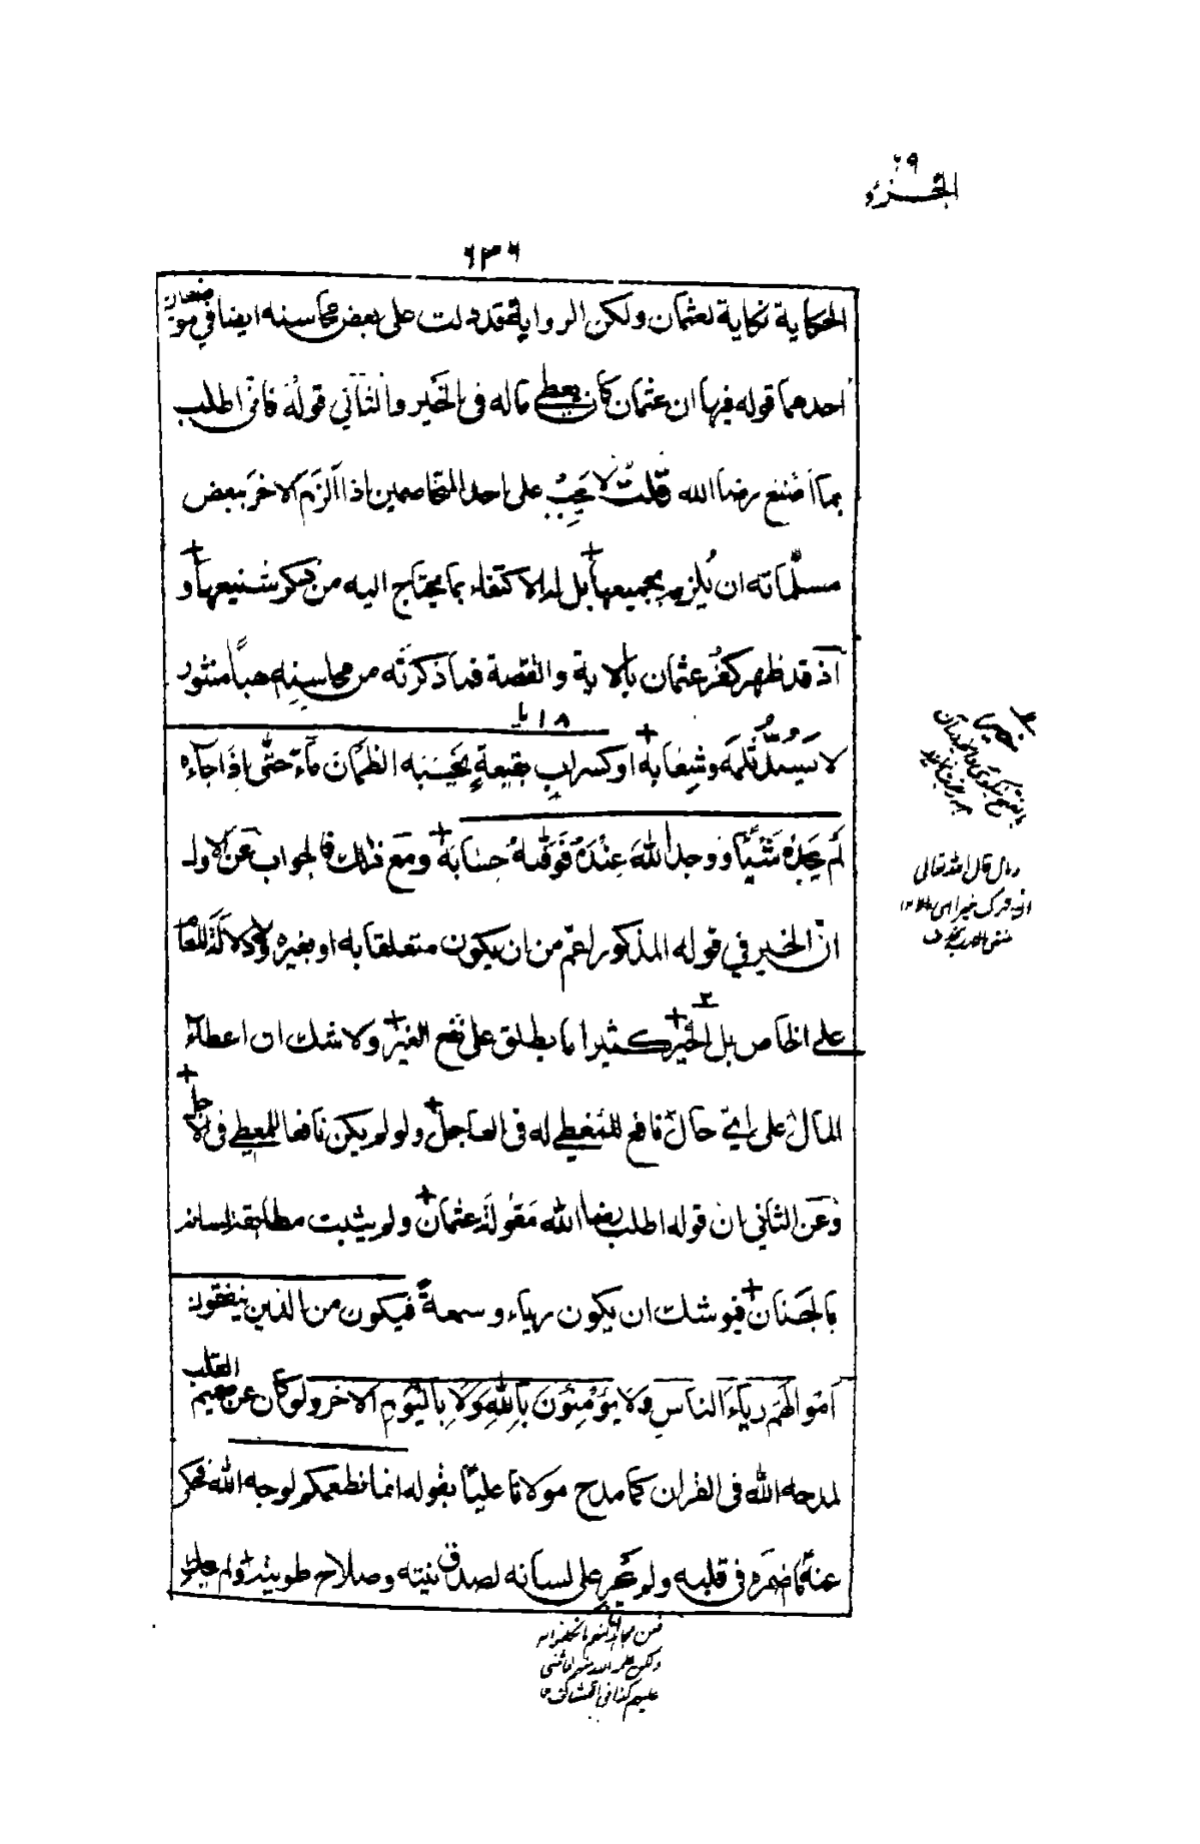 الجزء ٢٩
٦٣٦
الحكاية نكاية لعثمان ولكن الرواية قد دلت على بعض محاسنه ايضا في موضعان
احدهما قوله فيها ان عثمان كان يعطى ماله فى الخير والثانى قوله فانى اطلب
بما اصنع رضا الله قلت لا يجب على احد المتخاصمين اذا الزم الاخر ببعض
مسلّماته ان يُلزمه بجميعها بل له الاكتفاء بما يحتاج اليه من ذكر شنيعها و
اذ قد ظهر كفر عثمان بالاية والقصة فما ذكرته من محاسنه هباً منثور
لا يَسُدُّ ثُلمَه وشِعَابه او كسرابٍ بقيعةٍ يَحْسَبه الظمْآنُ مآءً حتّى اِذَا جآءه
لَم يَجِدْهُ شَيْئًا ووجد اللهَ عِنْدَهُ فَوَفّٰهُ حِسَابَه ومع ذلك فالجواب عن الاول
انّ الخير في قوله المذكور اعم من ان يكون متعلقا به او بغيره ولا دلالة للعام
على الخاص بل الخير كثيرا ما يطلق على نفع الغير ولا شك ان اعطاء
المال على اىّ حال نافع للمُعْطٰى له فى العاجل ولو لم يكن نافعا للمعطى فى الاجل
وعن الثانى ان قوله اطلب رضا الله مَقُولة عثمان ولم يثبت مطابقة لسانه
بالجنان فيوشك ان يكون رياء وسمعةً فيكون من الذين ينفقون
اَموالهَم رِياءَ الناسِ ولا يُؤمِنُونَ بِاللهِ وَلا بِاليَوْمِ الاخر ولو كان عن صميم القلب
لمدحه الله فى القران كما مدح مولانا عليّا بقوله انما نطعمكم لوجه الله فحكى
عنه ما اضمره فى قلبه ولم يجر على لسانه لصدق نيته وصلاح طويته ولم
قال الله تعالى
ان ترك خيرا